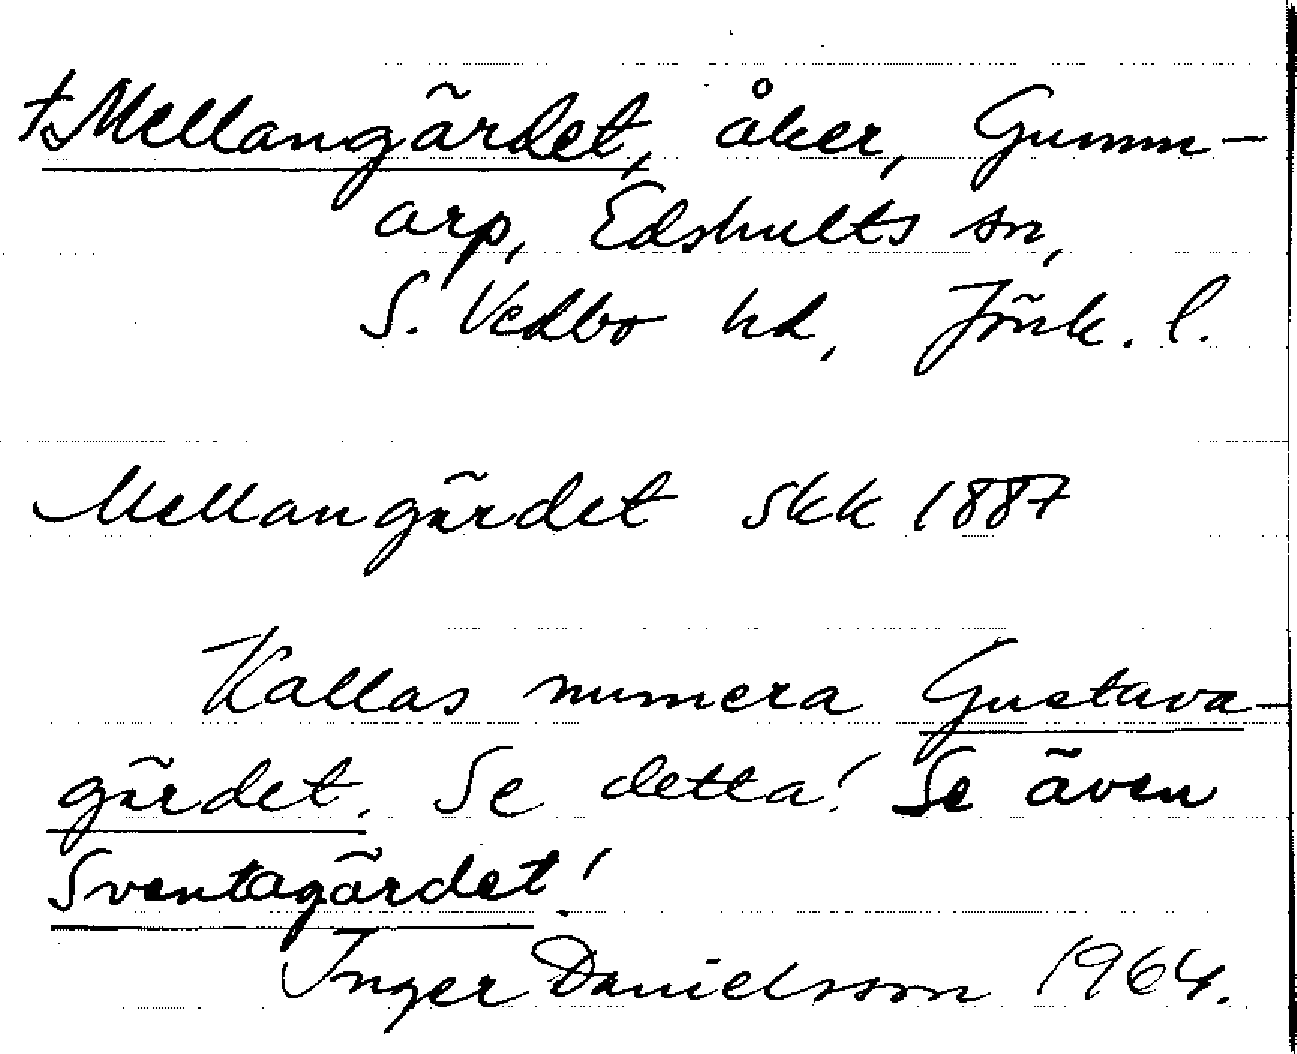 †Mellangärdet, åker, Gumm-
arp, Edshults sn,
S. Vedbo hd, Jönk. l.
Mellangärdet skk 1887
Kallas numera Gustava-
gärdet. Se detta! Se även
Sventagärdet!
Inger Danielsson 1964.